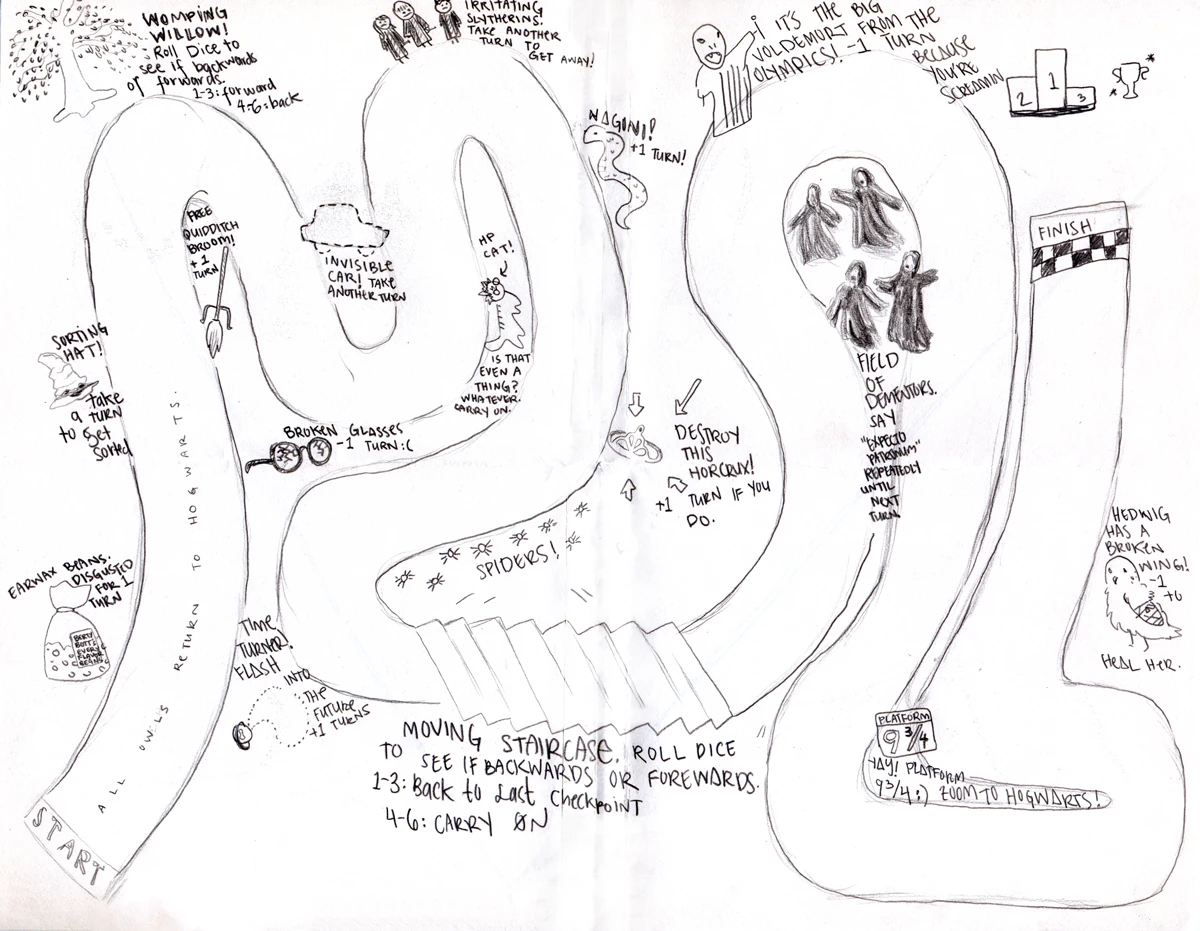 WOMPING
WILLOW!
Roll Dice to
see if backwards
or forwards.
1-3: forward
4-6: back
IRRITATING
SLYTHERINS!
TAKE ANOTHER
TURN TO
GET AWAY!
IT'S THE BIG
VOLDEMORT FROM THE
OLYMPICS! -1 TURN
BECAUSE
YOU'RE
SCREAMIN
2
1
3
NAGINI!
+1 TURN!
FREE
QUIDDITCH
BROOM!
+1
TURN
INVISIBLE
CAR! TAKE
ANOTHER TURN
HP
CAT!
IS THAT
EVEN A
THING?
WHATEVER.
CARRY ON.
FINISH
SORTING
HAT!
take
a turn
to get
sorted
BROKEN GLASSES
-1 TURN :(
DESTROY
THIS
HORCRUX!
+1 TURN IF YOU
DO.
FIELD
OF
DEMENTORS.
SAY
"EXPECTO
PATRONUM"
REPEATEDLY
UNTIL
NEXT
TURN.
HEDWIG
HAS A
BROKEN
WING!
-1
to
HEAL HER.
SPIDERS!
EARWAX BEANS.
DISGUSTED
FOR 1
TURN
BERTY
BOTT'S
EVERY
FLAVOR
BEANS
TIME
TURNER.
FLASH
INTO
THE
FUTURE
+1 TURNS
MOVING STAIRCASE. ROLL DICE
TO SEE IF BACKWARDS OR FOREWARDS.
1-3: Back to Last Checkpoint
4-6: CARRY ON
PLATFORM
9 3/4
YAY! PLATFORM
9 3/4 :) ZOOM TO HOGWARTS!
ALL OWLS RETURN TO HOGWARTS.
START